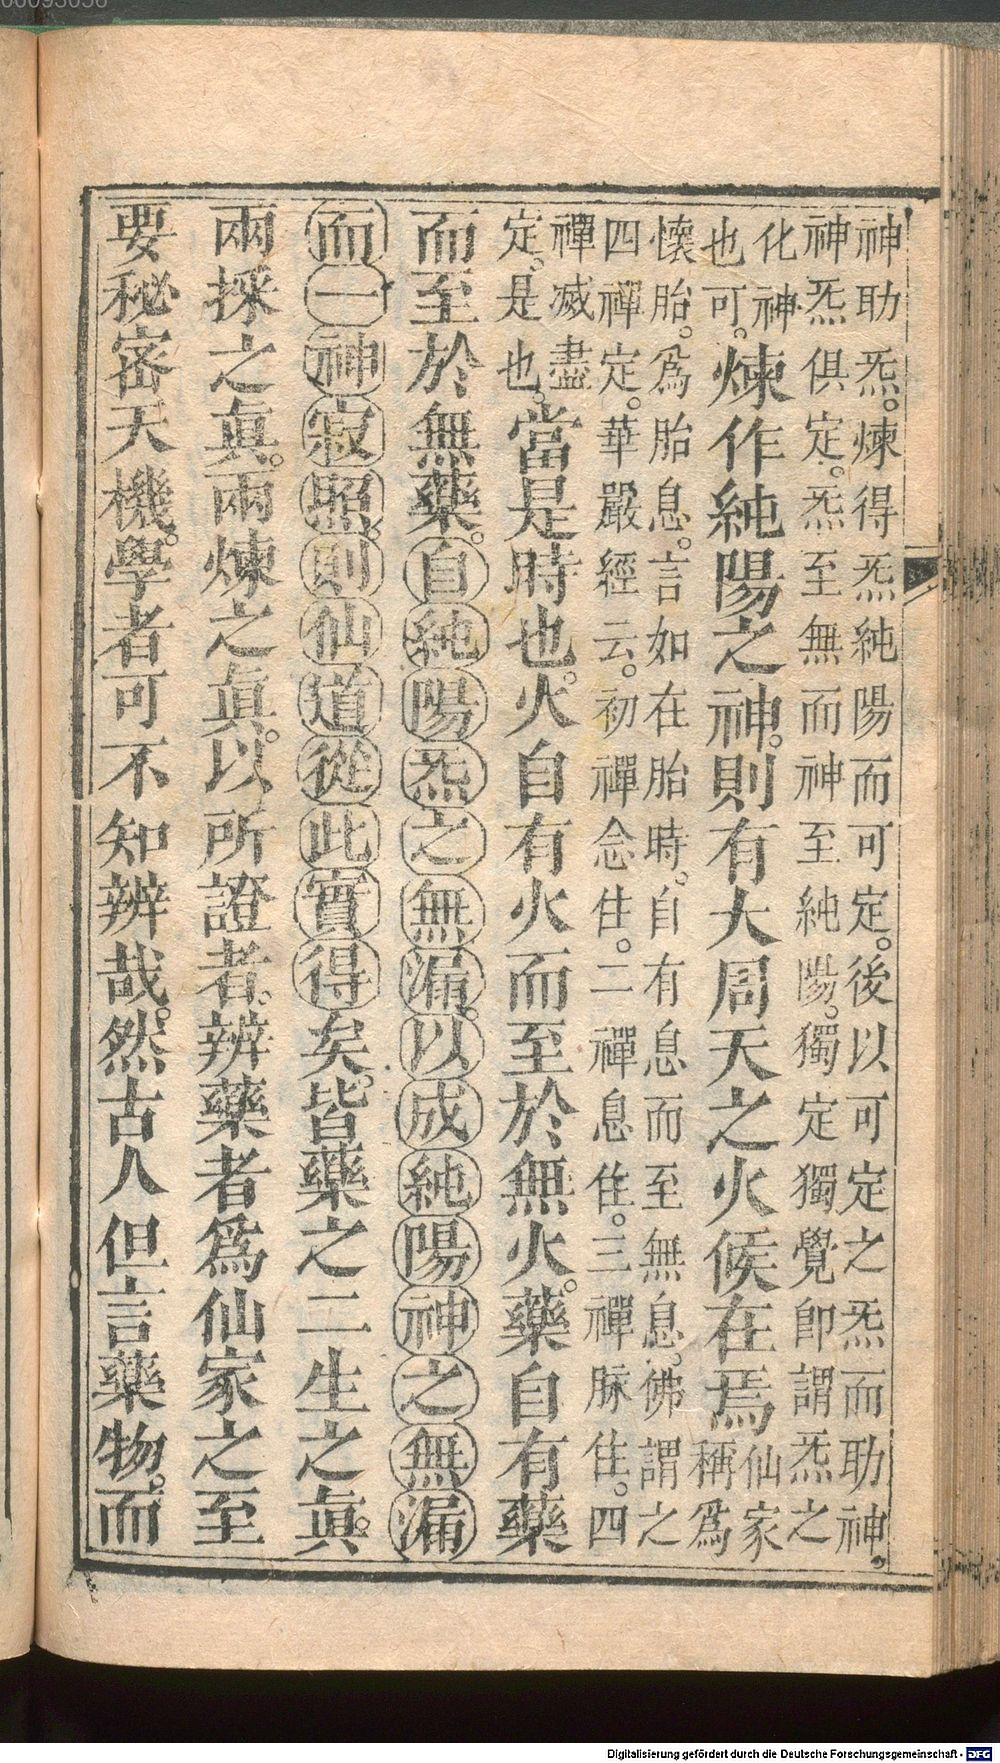 00093056
神助炁。煉得炁純陽而可定。後以可定之炁而助神。
神炁俱定。炁至無而神至純陽。獨定獨覺即謂炁之
化神
也可。
煉作純陽之神。則有大周天之火候在焉
仙家
稱爲
懷胎。爲胎息。言如在胎時。自有息而至無息。佛謂之
四禪定。華嚴經云。初禪念住。二禪息住。三禪脉住。四
禪滅盡
定。是也。
當是時也。火自有火而至於無火。藥自有藥
而至於無藥。自純陽炁之無漏。以成純陽神之無漏
而一神寂照。則仙道從此實得矣。皆藥之二生之眞。
兩採之眞。兩煉之眞。以所證者。辨藥者爲仙家之至
要秘密天機。學者可不知辨哉。然古人但言藥物。而
Digitalisierung gefördert durch die Deutsche Forschungsgemeinschaft - DFG